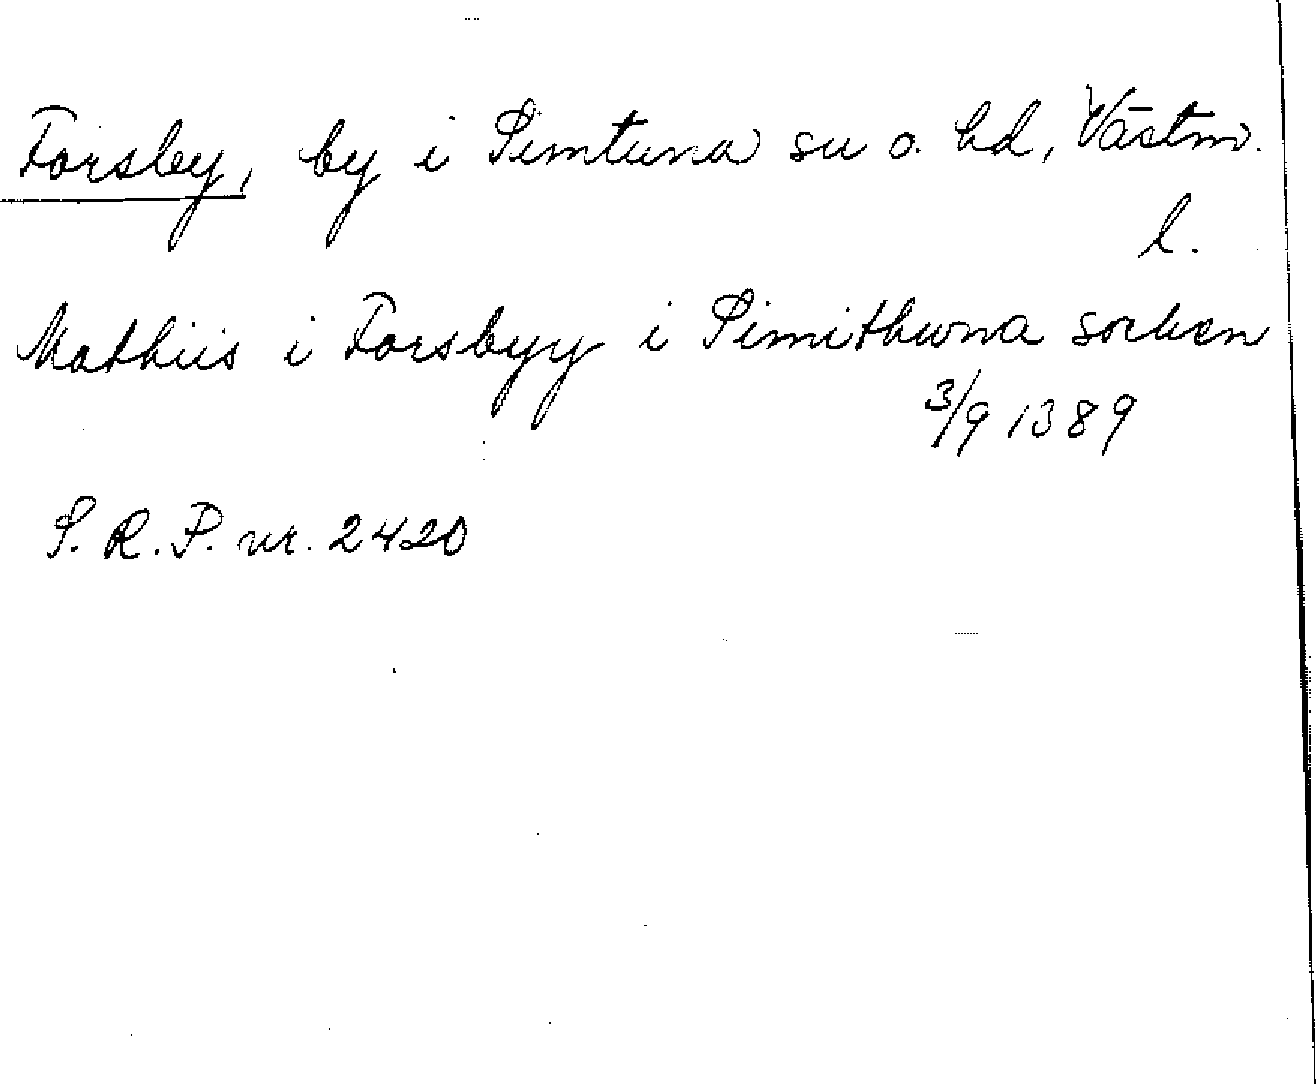 Forsby, by i Simtuna sn o. hd, Västm.
l.
Mathiis i Forsbyy i Simithwna soken
3/9 1389
S. R. P. nr. 2420